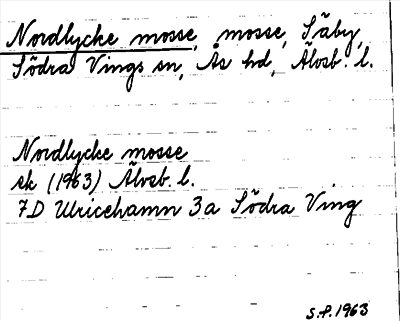 Nordlycke mosse, mosse, Säby,
Södra Vings sn, Ås hd, Älvsb. l.
Nordlycke mosse
sk (1963) Älvsb. l.
7D Ulricehamn 3a Södra Ving
S.P. 1963